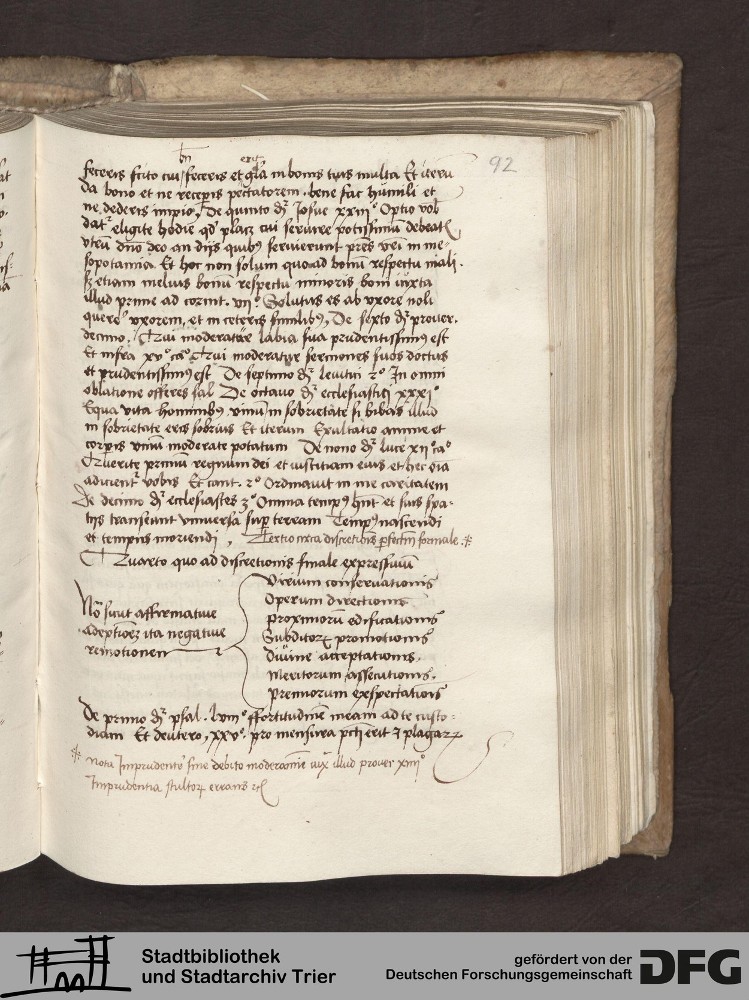 92
feceris scito cui feceris et gr̄a in bonis tuis multa Et iteru
da bono et ne receperis peccatorem. bene fac humili et
ne dederis impio, De quinto dr̄ Josue xxiiijº Optio vob
datr̄ eligite hodie qd placz cui seruire potissimū debeatꝭ
vtrū dn̄o deo an dijs quibꝯ seruierunt pr̄es vr̄i in me
sopotamia Et hoc non solum quo ad bonū respectu mali.
sz etiam melius bonū respectu minoris boni iuxta
illud prime ad corint. vijº Solutus es ab vxore noli
querer̄ vxorem, et in ceteris similibꝯ, De sexto dr̄ prouer.
decimo. Qui moderatur labia sua prudentissimꝯ est
Et infra xvºcaº Qui moderatur sermones suos doctus
et prudentissimꝯ est De septimo dr̄ leuitici 2º In omni
oblatione offeres sal De octauo dr̄ ecclesiastici xxxjº
Equa vita hominibꝯ vinū in sobrietate si bibas illud
in sobrietate eris sobrius Et iterum Exultatio anime et
corporis vinū moderate potatum De nono dr̄ luce xijºcaº
Querite primū regnum dei et iusticiam eius et hec oīa
adicientr̄ vobis Et cant. 2º Ordinauit in me caritatem
De decimo dr̄ ecclesiastes 3º Omnia tempꝯ hn̄t et suis spa-
tijs transeunt vniuersa super terram Tempꝯ nascendi
et tempus moriendi, Tertio circa discretionis perfectū formale.
Quarto quo ad discretionis finale expressiuū
Nō sunt affirmatiue
adeptionez ita negatiue
remotionem
Virium conseruationis
Operum directionis
proximorū edificationis
Subditorꝝ promotionis
Diuine acceptationis.
Meritorum assecutionis.
premiorum exspectationis
De primo dr̄ psal. lviijº ffortitudinē meam ad te custo-
diam Et deutero, xxvº. pro mensura pcti erit z plagarꝝ
Nota Imprudentes sine debito moderamine iux illud prouer xiiijº
Imprudentia stultorꝝ errans
Stadtbibliothek
und Stadtarchiv Trier
gefördert von der
Deutschen Forschungsgemeinschaft
DFG